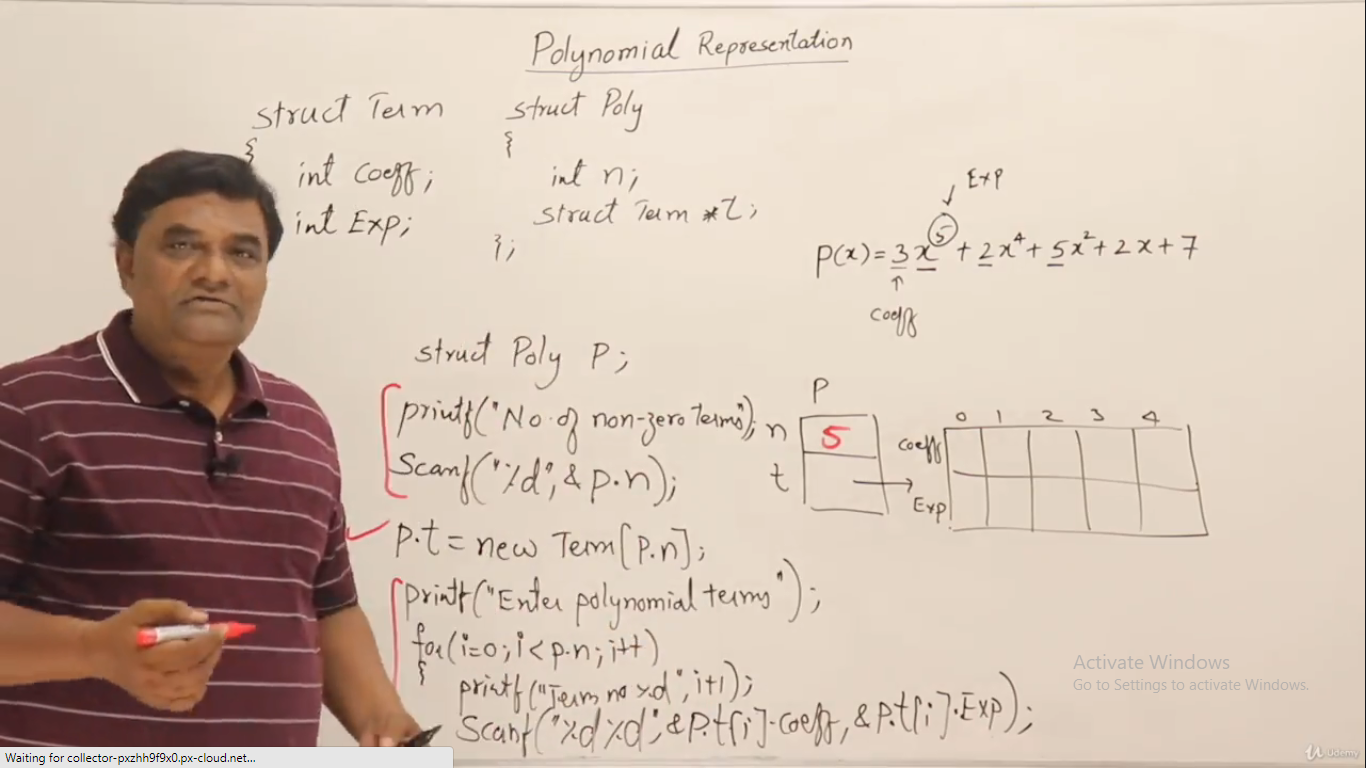 Polynomial Representation
struct Term
{
int coeff;
int Exp;
struct Poly
{
int n;
struct Term *t;
};
Exp
P(x) = 3x⁵ + 2x⁴ + 5x² + 2x + 7
coeff
struct Poly P;
printf("No. of non-zero terms");
Scanf("%d", & p.n);
p.t = new Term[p.n];
printf("Enter polynomial terms");
for(i=0; i < p.n; i++)
{
printf("Term no %d", i+1);
Scanf("%d%d", &p.t[i].coeff, &p.t[i].Exp);
P
n 5
t
0 1 2 3 4
coeff
Exp
Activate Windows
Go to Settings to activate Windows.
Udemy
Waiting for collector-pxzhh9f9x0.px-cloud.net...